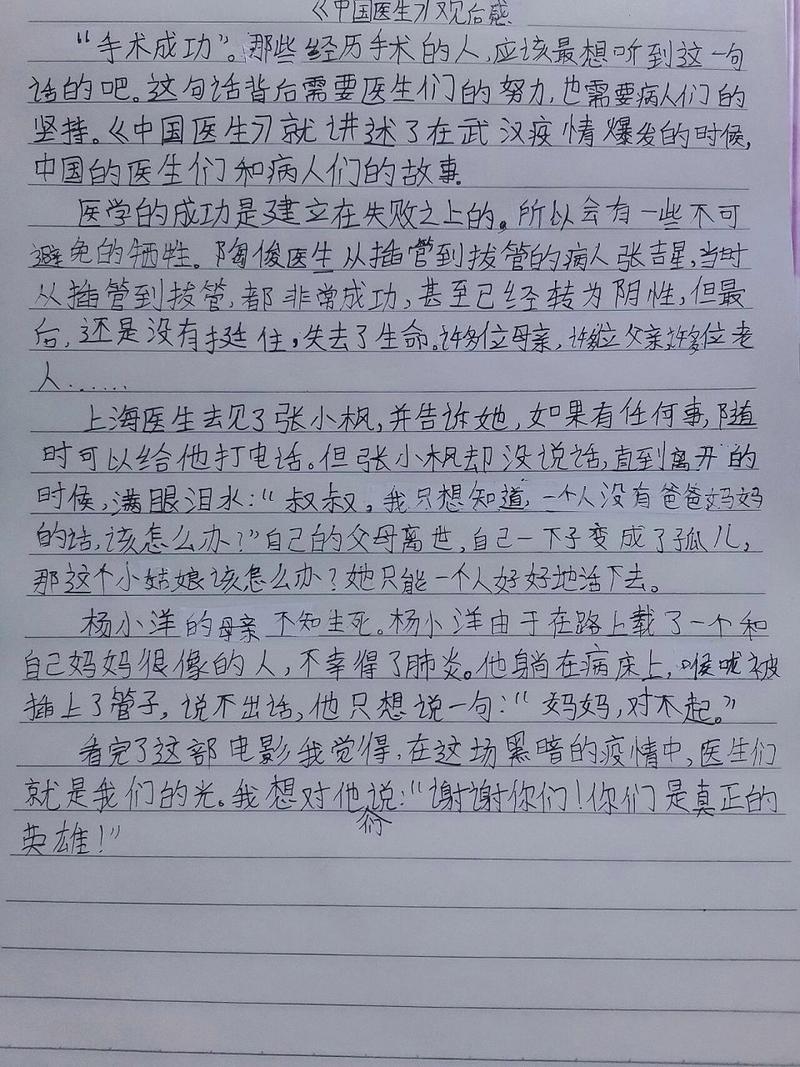 《中国医生》观后感
“手术成功”。那些经历手术的人，应该最想听到这一句
话的吧。这句话背后需要医生们的努力，也需要病人们的
坚持。《中国医生》就讲述了在武汉疫情爆发的时候，
中国的医生们和病人们的故事。
医学的成功是建立在失败之上的。所以会有一些不可
避免的牺牲。陶俊医生从插管到拔管的病人张吉星，当时
从插管到拔管，都非常成功，甚至已经转为阴性，但最
后，还是没有挺住，失去了生命。许多位母亲，许多位父亲，许多位老
人……
上海医生去见了张小枫，并告诉她，如果有任何事，随
时可以给他打电话。但张小枫却没说话，直到离开的
时候，满眼泪水：“叔叔，我只想知道，一个人没有爸爸妈妈
的话，该怎么办？”自己的父母离世，自己一下子变成了孤儿，
那这个小姑娘该怎么办？她只能一个人好好地活下去。
杨小洋的母亲不知生死。杨小洋由于在路上载了一个和
自己妈妈很像的人，不幸得了肺炎。他躺在病床上，喉咙被
插上了管子，说不出话，他只想说一句：“妈妈，对不起。”
看完了这部电影我觉得，在这场黑暗的疫情中，医生们
就是我们的光。我想对他们说：“谢谢你们！你们是真正的
英雄！”